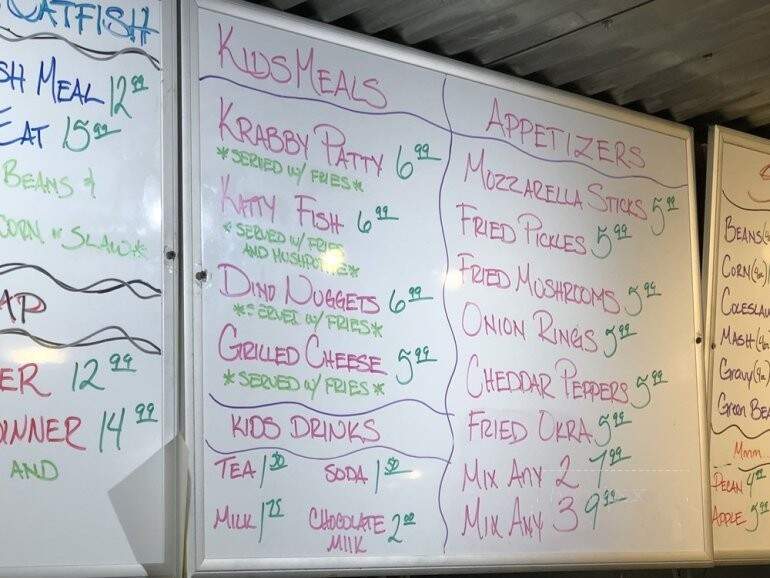 CATFISH
MEAL 12.99
EAT 15.99
BEANS &
CORN SLAW*
12.99
14.99
AND
KIDS MEALS
KRABBY PATTY 6.99
*SERVED W/ FRIES*
KATTY FISH 6.99
*SERVED W/ FRIES
AND
DINO NUGGETS 6.99
*SERVED W/ FRIES*
GRILLED CHEESE 5.99
*SERVED W/ FRIES*
KIDS DRINKS
TEA 1.50 SODA 1.50
MILK 1.75 CHOCOLATE 2.00
MIlK
APPETIZERS
MOZZARELLA STICKS 5.99
FRIED PICKLES 5.99
FRIED MUSHROOMS 5.99
ONION RINGS 5.99
CHEDDAR PEPPERS 5.99
FRIED OKRA 5.99
MIX ANY 2 7.99
MIX ANY 3 9.99
BEANS
CORN
COLESLAW
MASH
Gravy
Green
Mmm...
PECAN 4.99
APPLE 3.99